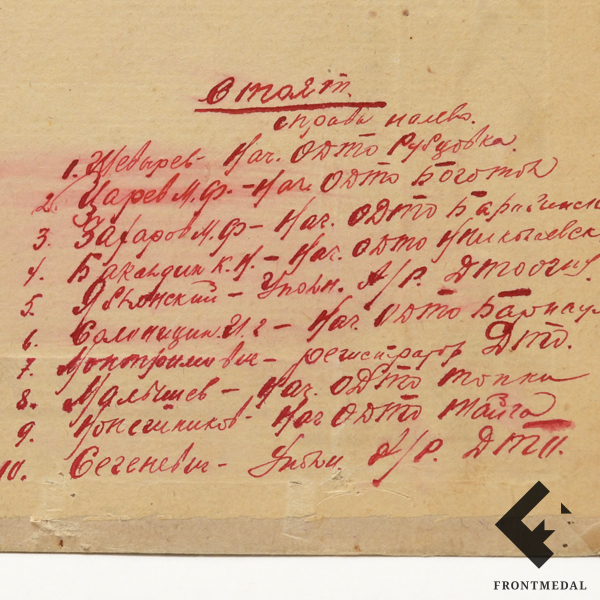 Стоят
справа налево.
1. Шевырев - Нач. ОДТО Рубцовка.
2. Царев М.Ф. - Нач. ОДТО Боготол
3. Захаров М.Ф - Нач. ОДТО Барабинск
4. Баландин К.К. - Нач. ОДТО Николаевск
5. Яблонский - Уполн. А/Р.
6. Солоницин И г - Нач ОДТО Барнаул
7. регистратор ДТО.
8. Малышев - Нач. ОДТО Топки
9. Нач ОДТО Тайга
10. Сегеневич - Уполн А/Р. ДТО.
FRONTMEDAL